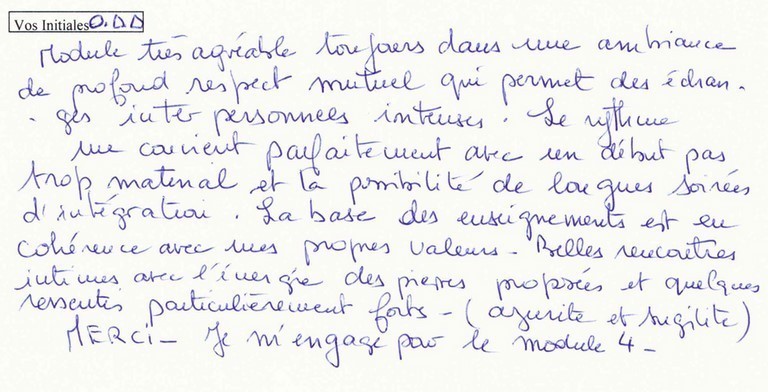 Vos Initiales O.DD
Module très agréable toujours dans une ambiance
de profond respect mutuel qui permet des échan-
- ges inter personnees intenses. Le rythme
me convient parfaitement avec un début pas
trop matinal et la possibilité de longues soirées
d'intégration. La base des enseignements est en
cohérence avec mes propres valeurs - Belles rencontres
intimes avec l'énergie des pierres proposées et quelques
ressentis particulièrement forts - (azurite et sugilite)
MERCI - Je m'engage pour le module 4 -